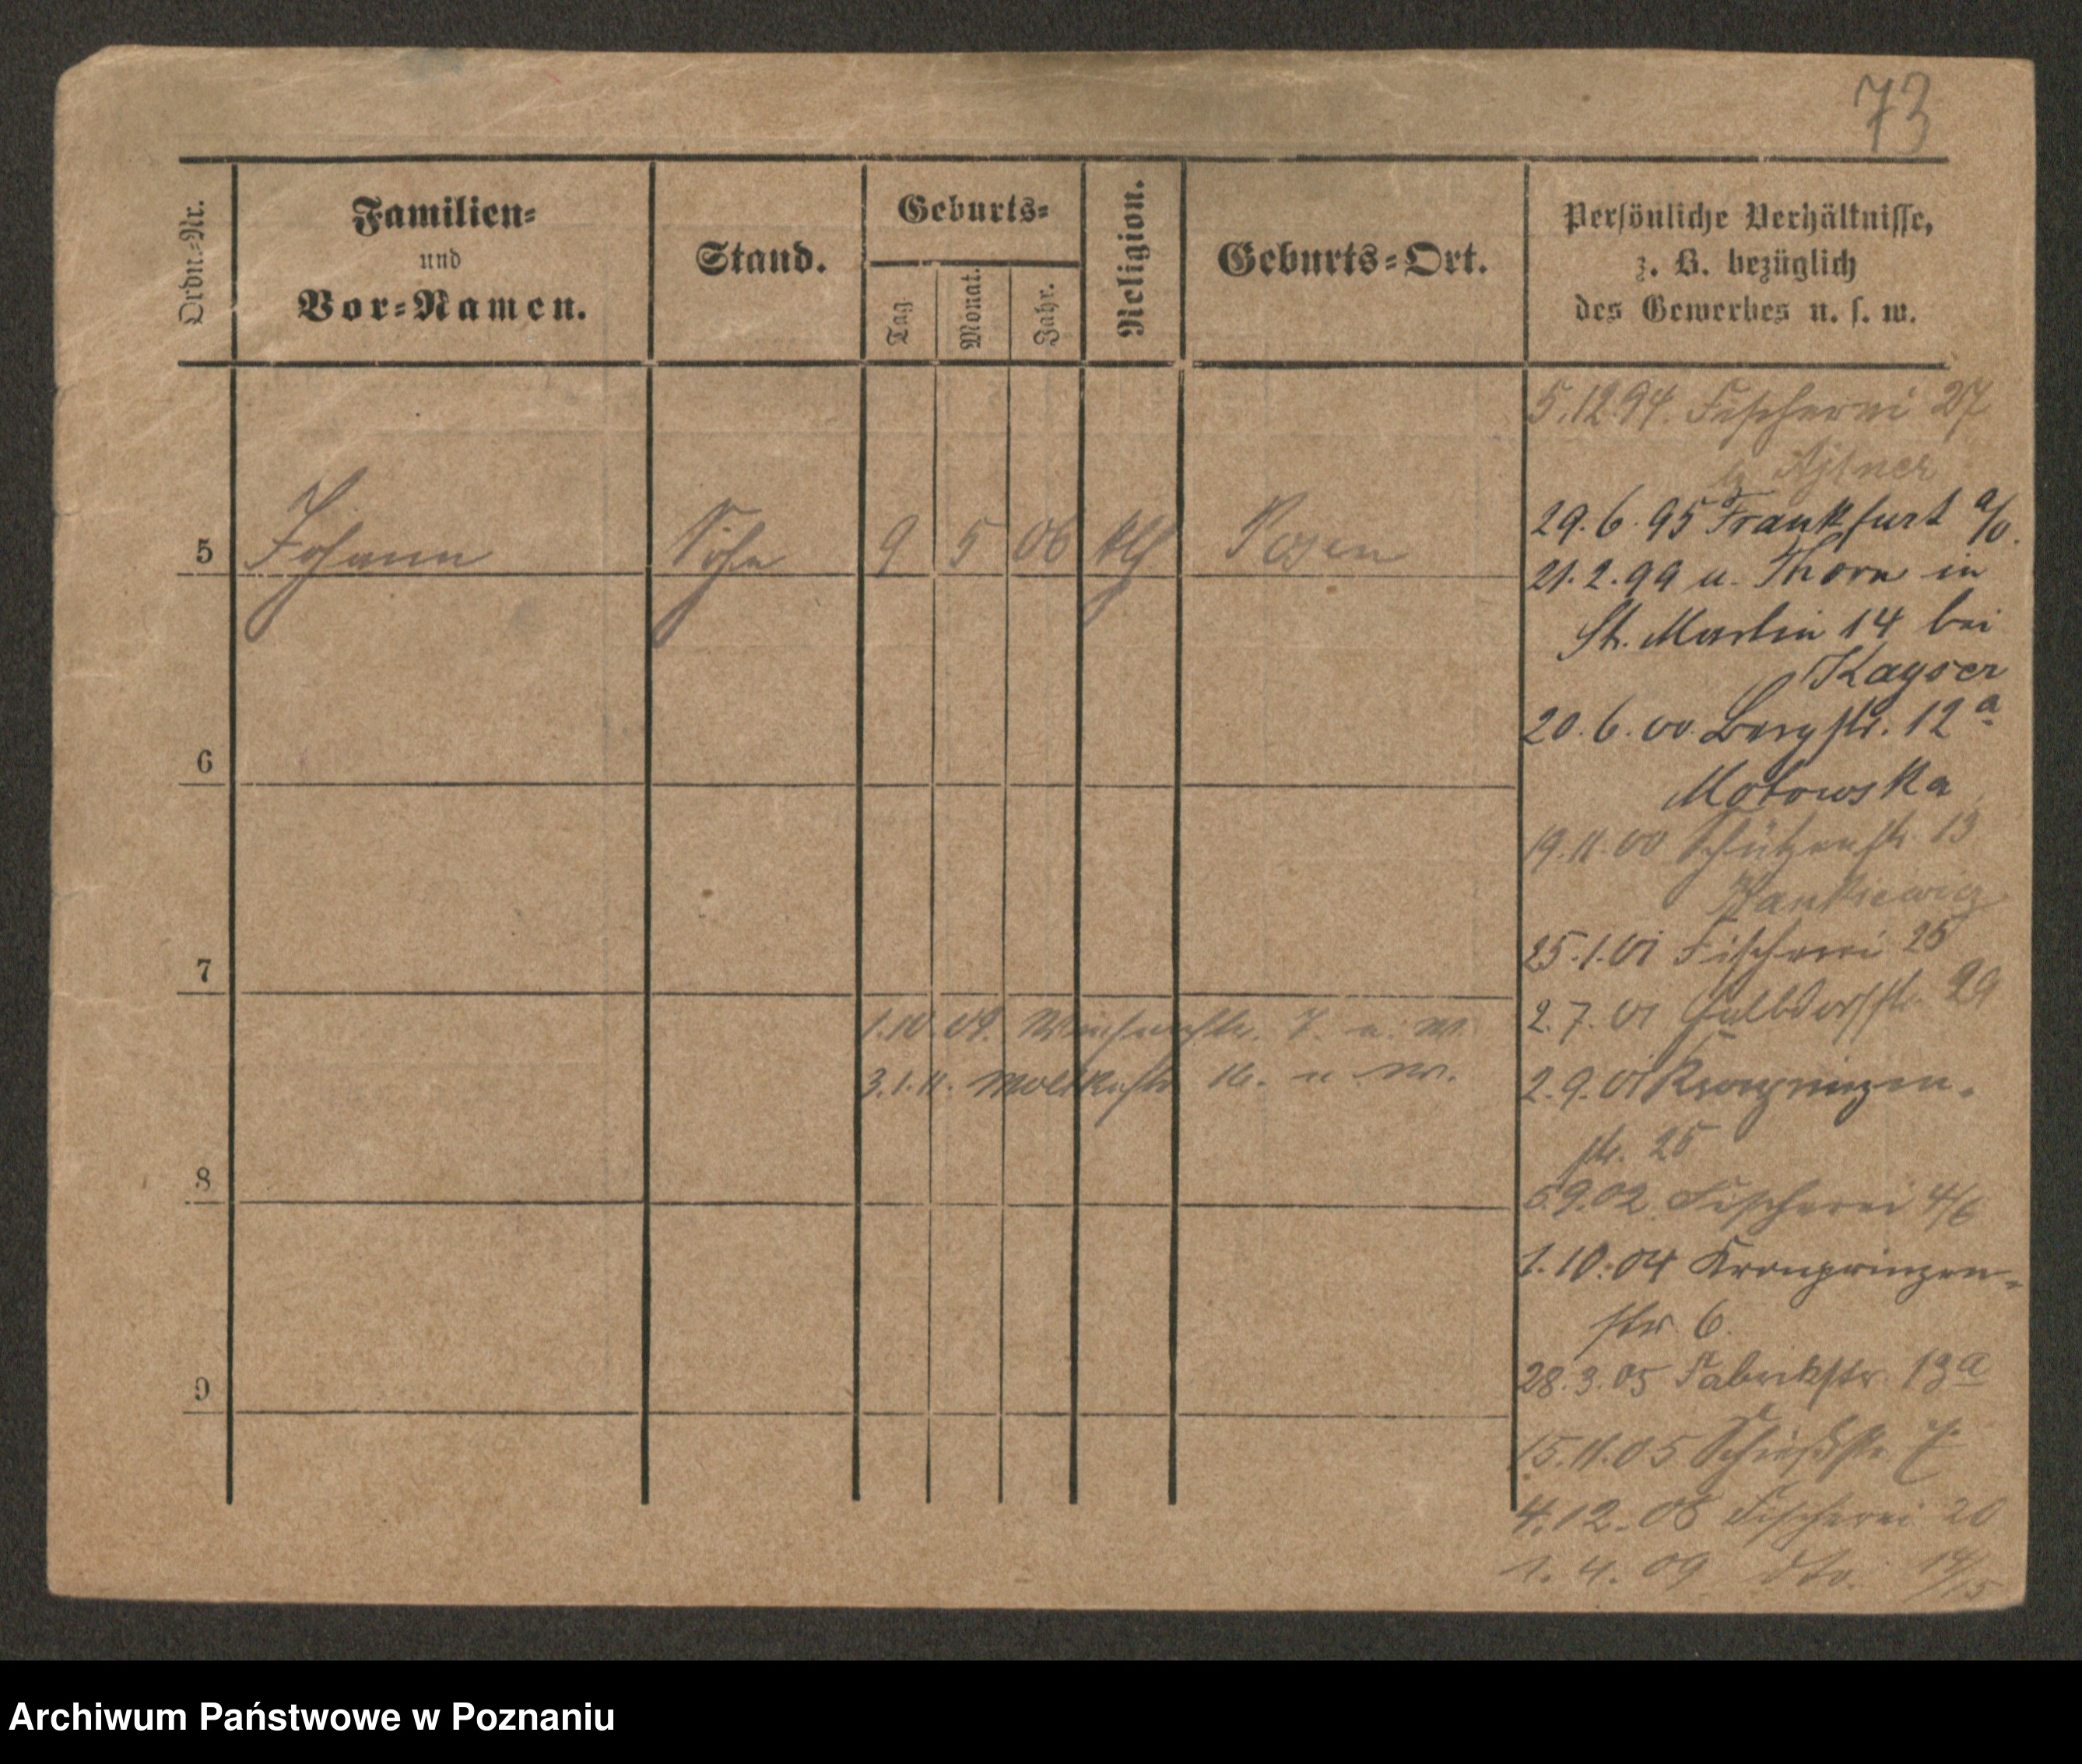 73
Ordn.-Nr.
Familien-
und
Vor-Namen.
Stand.
Geburts-
Tag.
Monat.
Jahr.
Religion.
Geburts-Ort.
Persönliche Verhältnisse,
z. B. bezüglich
des Gewerbes u. s. w.
5.12 94. Fischerei 27
29.6.95 Frankfurt a/O.
5 Johann Sohn 9 5 06 kth Posen
21.2.99 u. Thorn in
St. Martin 14 bei
Kayser
20.6.00. Bergstr. 12a
6
Motowska
19.11.00 Schützenstr. 13
25.1.01 Fischerei 25
7
2.7.01 Halbdorfstr. 29
1.10.09. 7. u. W.
3.1.11. Moltkestr. 16. u. W.
2.9.01 Kronprinzen-
str. 25
8
5.9.02. Fischerei 4/6
1.10.04 Kronprinzen-
str 6.
28.3.05 Fabrikstr. 13a
9
15.11.05 Schießstr. 7
4.12.08 Fischerei 20
1.4.09. dto. 14/15
Archiwum Państwowe w Poznaniu